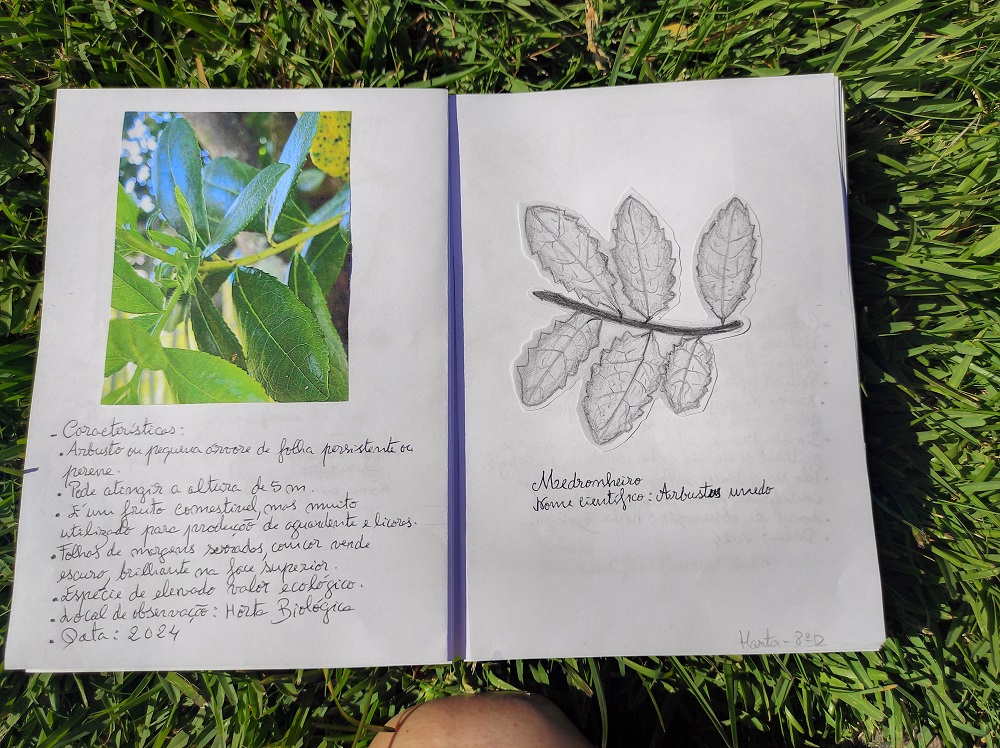 - Características:
• Arbusto ou pequena árvore de folha persistente ou
perene.
• Pode atingir a altura de 5 m.
• É um fruto comestível, mas muito
utilizado para produção de aguardente e licores.
• Folhas de margens serradas, com cor verde
escuro, brilhante na face superior.
• Espécie de elevado valor ecológico.
• Local de observação: Horta Biológica
• Data: 2024
Medronheiro
Nome científico: Arbustus unedo
Marta - 8ºD